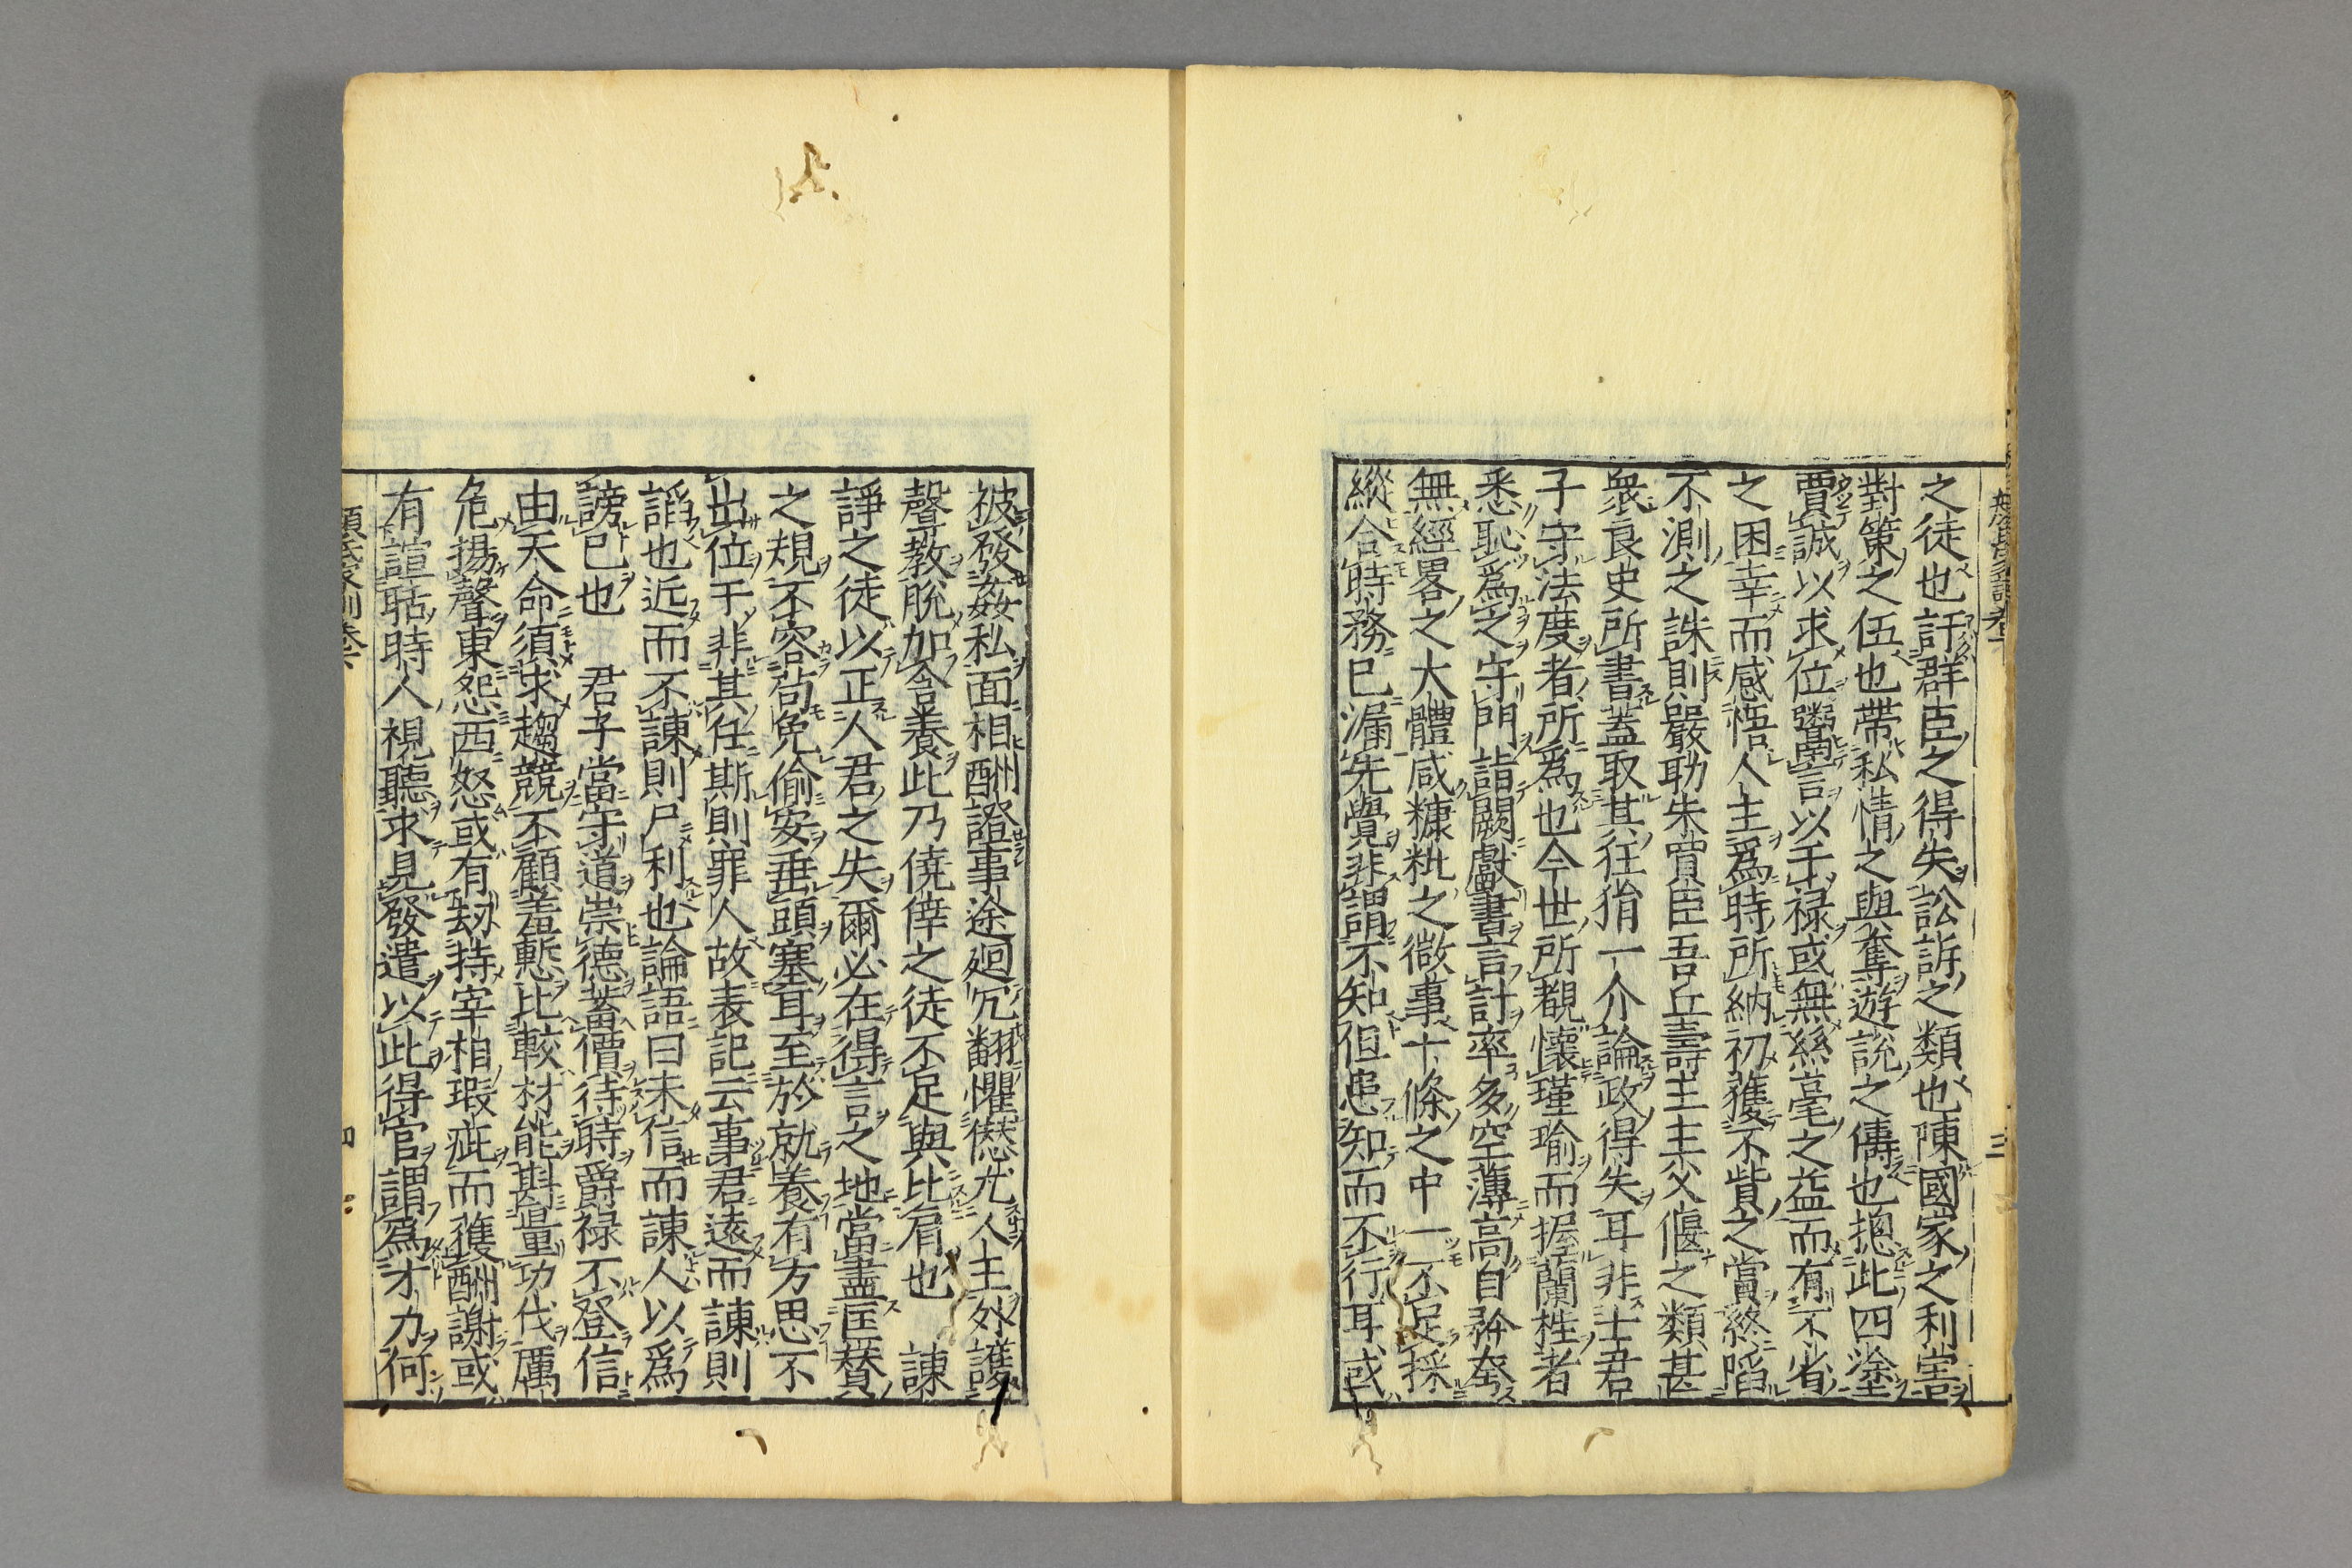 之徒也訐群臣之得失訟訴之類也陳國家之利害
對策之伍也帶私情之與奪遊説之儔也摠此四塗
賈誠以求位鬻言以干禄或無絲毫之益而有不省
之困幸而感悟人主爲時所納初獲不貲之賞終䧟
不測之誅則嚴助朱買臣吾丘壽王主父偃之類甚
衆良史所書蓋取其狂狷一介論政得失耳非士君
子守法度者所爲也今世所覩懷瑾瑜而握蘭桂者
悉恥爲之守門詣闕獻書言計率多空薄高自矜夸
無經畧之大體咸糠粃之微事十條之中一不足採
縱合時務已漏先覺非謂不知但患知而不行耳或
被發姦私面相酬證事途廻冗翻懼愆尤人主外護
聲教脱加含養此乃僥倖之徒不足與比肩也　諫
諍之徒以正人君之失爾必在得言之地當盡匡賛
之規不容苟免偷安垂頭塞耳至於就養有方思不
出位干非其任斯則罪人故表記云事君遠而諫則
謟也近而不諫則尸利也論語曰未信而諫人以爲
謗已也　君子當守道崇德蓄價待時爵禄不登信
由天命須求趨競不顧羞慙比較材能斟量功伐厲
色揚聲東怨西怒或有刼持宰相瑕疵而獲酬謝或
有諠聒時人視聽求見發遣以此得官謂爲才力何